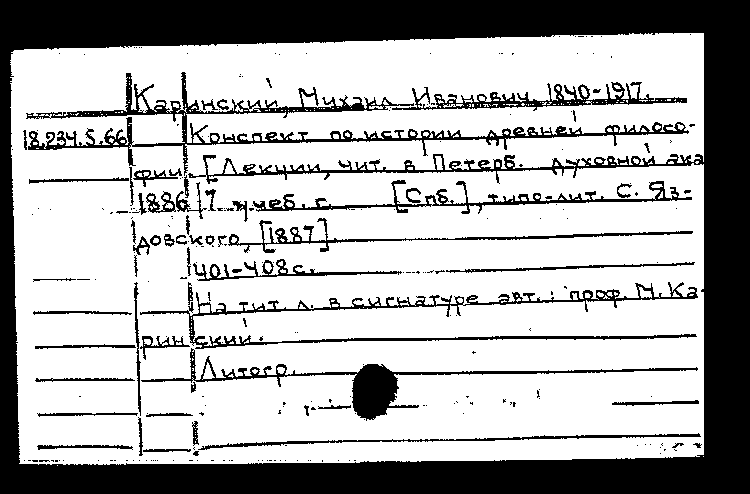 Каринский, Михаил Иванович, 1840-1917.
18.234.5.66 Конспект по истории древней филосо-
фии. [Лекции, чит. в Петерб. духовной ака
1886/7 учеб. г. [Спб.], типо-лит. С. Яз-
довского, [1887].
401-408 с.
На тит. л. в сигнатуре авт.: проф. М. Ка-
ринский.
Литогр.